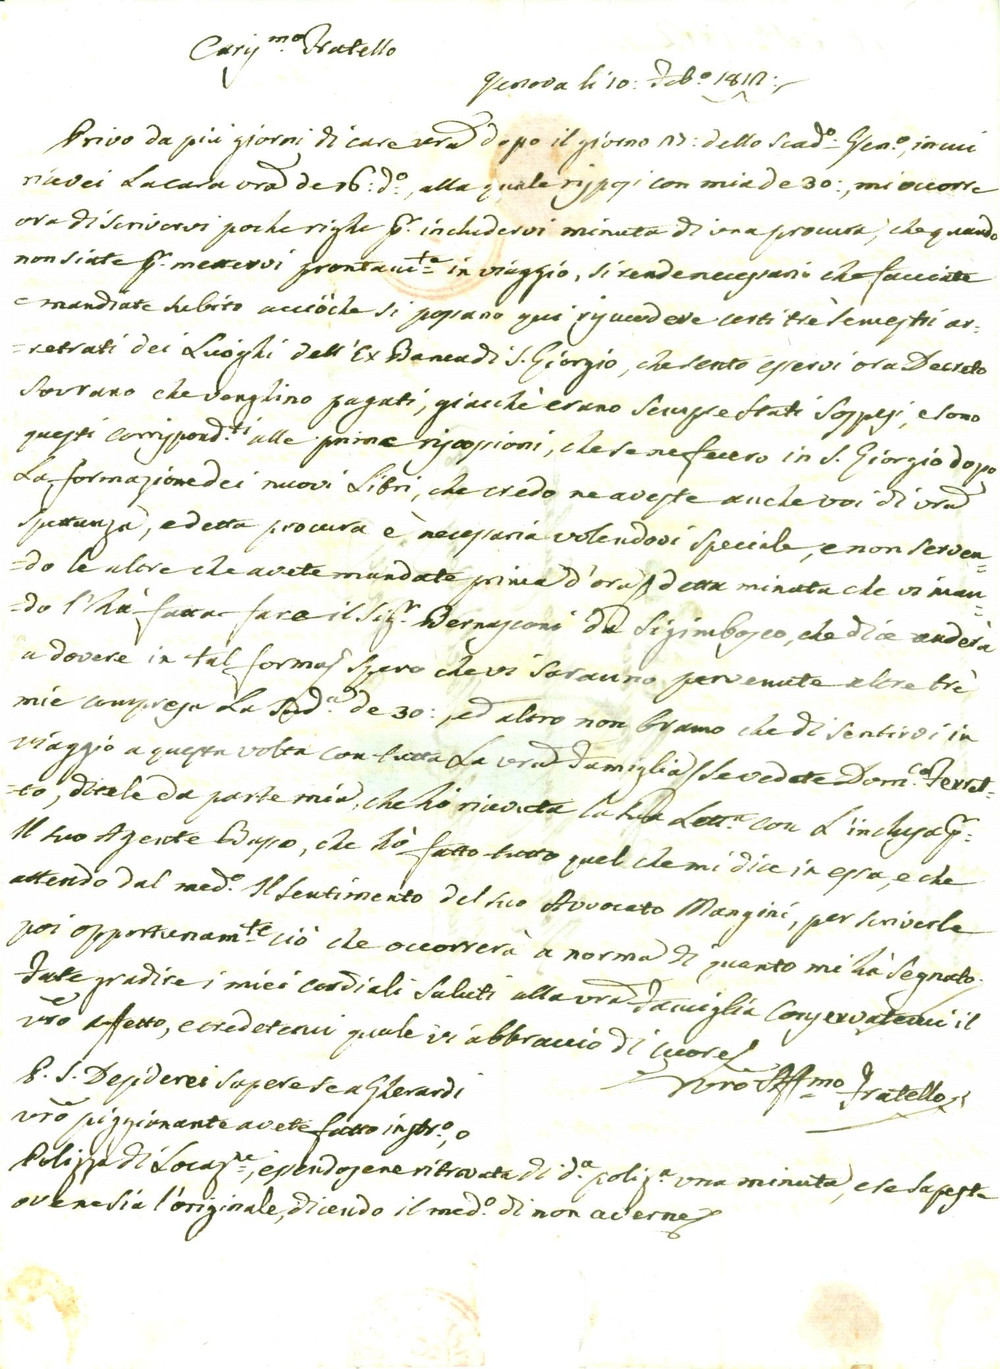 Cariss.mo Fratello
Genova li 10: Feb.o
Privo da più giorni di care vrẽ dopo il giorno dello scad.o Gen.o, in cui
ricevei La cara vrã de 16: d.o, alla quale risposi con mia de 30:, mi occorre
ora di scrivervi poche righe p. inchidervi minuta di una procura, che quando
non siate p. mettervi prontam.te in viaggio, si rende necessario che facciate
e mandiate subito acciòche si possano qui riscuodere certi trè semestri ar-
-retrati dei Luoghi dell'Ex Banca di S. Giorgio, che sento esservi ora Decreto
Sovrano che venghino pagati, giacchè erano sempre stati sospesi, e sono
questi corrispond.ti alle prime riscossioni, che se ne fecero in S. Giorgio dopo
La formazione dei nuovi Libri, che credo ne aveste anche voi di vrã
spettanza, e detta procura è necessaria volendovi speciale, e non serven-
-do le altre che avete mandate prima d'ora, detta minuta che vi man-
-do l'hà fatta fare il Sig.r Bernasconi da Sigimbosco, che dice anderà
a dovere in tal forma. Spero che vi saranno pervenute altre trè
mie compresa La Sud.a de 30:, ed altro non bramo che di sentirvi in
viaggio a questa volta con tutta La vrã Famiglia. Se vedete Dom.co Ferret-
-to, ditele da parte mia, che hò ricevuta la sua Lett.a con L'inclusa p.
Il suo Agente Basso, che hò fatto tutto quel che mi dice in essa, e che
attendo dal med.o Il sentimento del suo Avvocato Mangini, per scriverle
poi opportunam.te ciò che occorrerà a norma di quanto mi hà segnato.
Fate gradire i miei cordiali saluti alla vrã Famiglia Conservatemi il
vrõ affetto, e credetemi quale vi abbraccio di cuore
Vrõ Aff.mo Fratello
P. S. Desiderei sapere se a Gherardi
vrõ piggionante avete fatto instr.o, o
Polizza di Locaz.ne, essendosene ritrovata di d.a poliz.a una minuta, e se sapeste
ove ne sia l'originale, dicendo il med.o di non averne